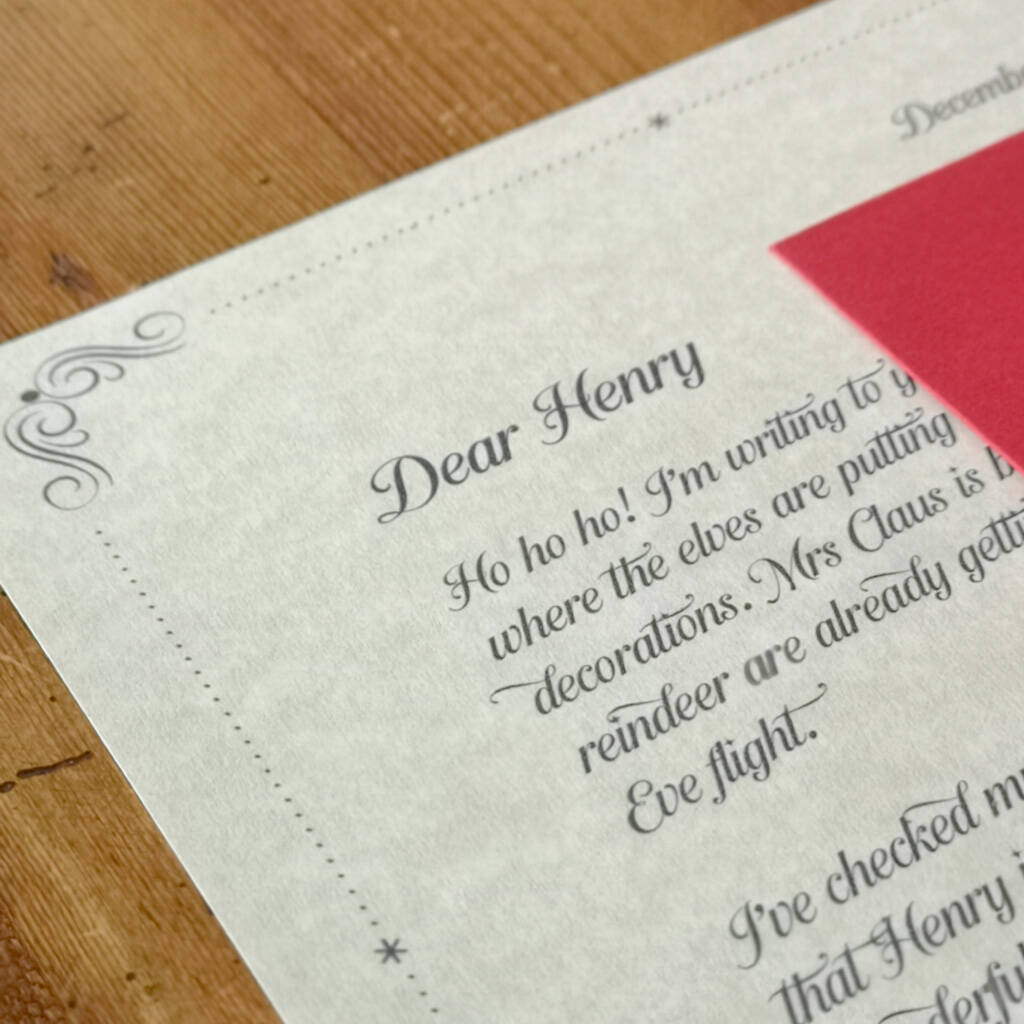 Decemb
Dear Henry
Ho ho ho! I'm writing to y
where the elves are putting
decorations. Mrs Claus is b
reindeer are already getti
Eve flight.
I've checked m
that Henry i
derful